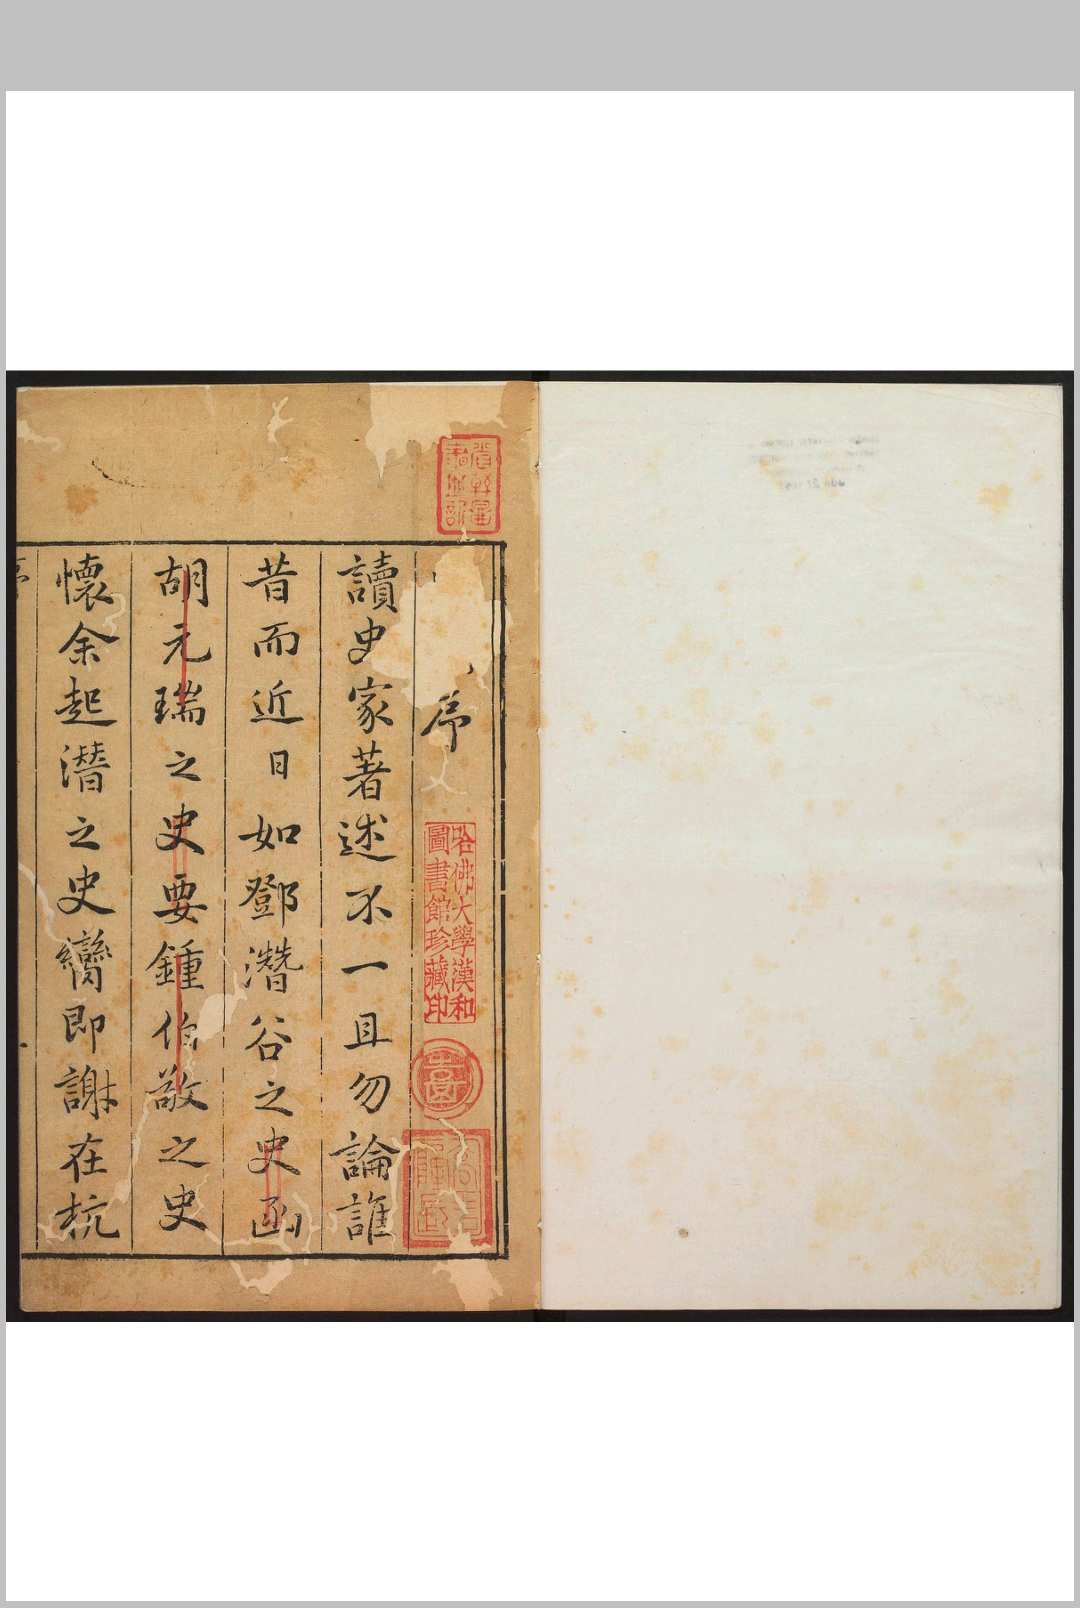 序
讀史家著述不一且勿論誰
昔而近日如鄧潛谷之史函
胡元瑞之史要鍾伯敬之史
懷余起潛之史臠即謝在杭
哈佛大學漢和
圖書館珍藏印